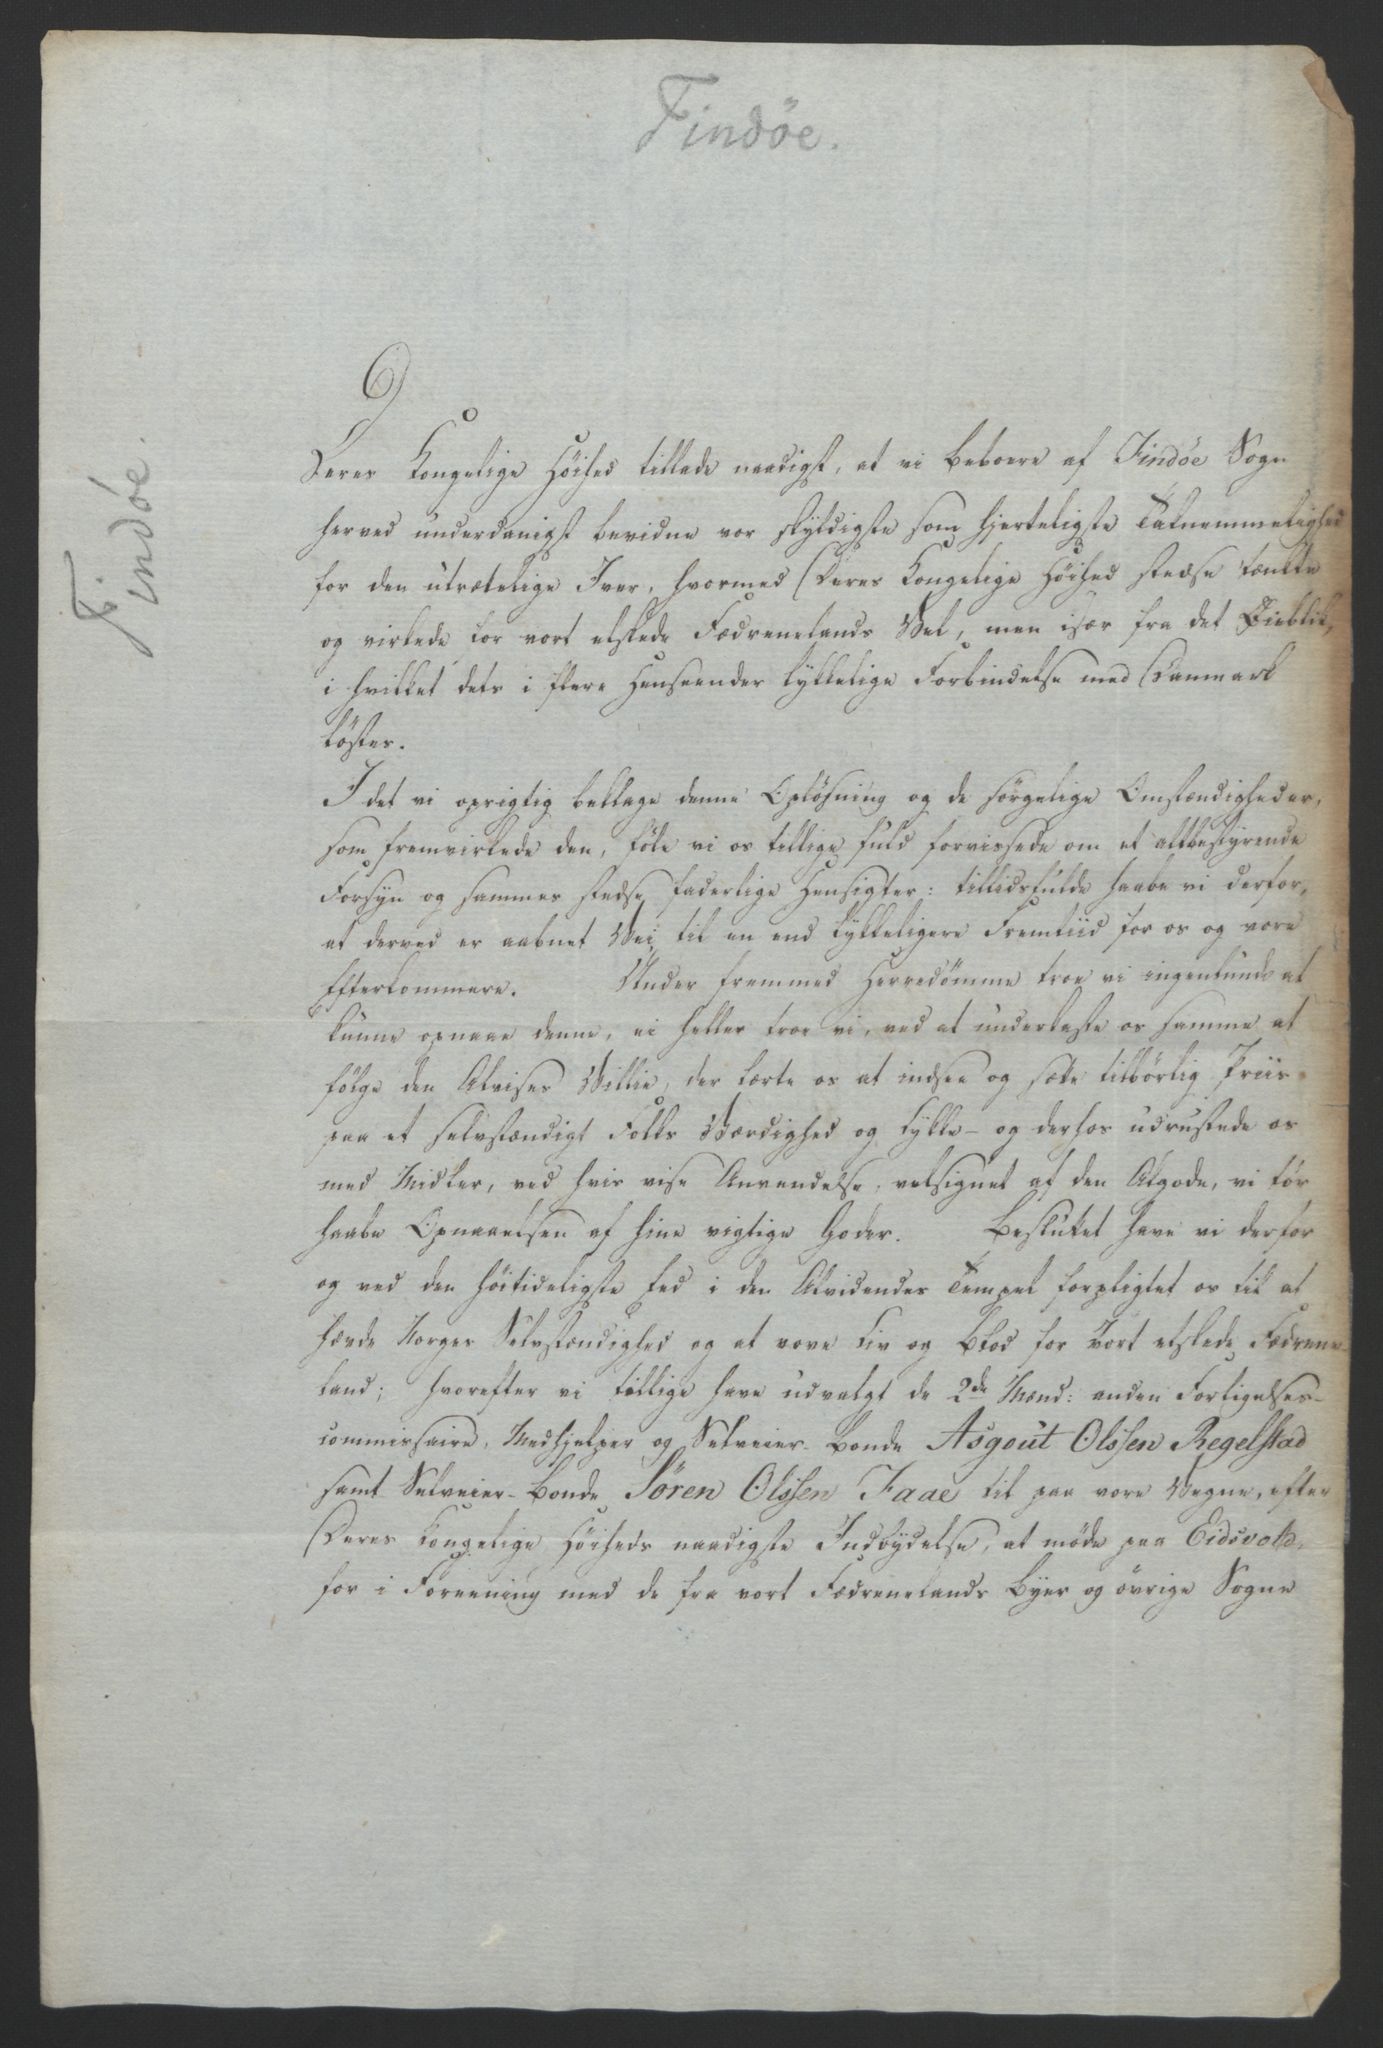 Findöe.
Findöe.
Deres Kongelige Höihed tillade naadigst, at vi Beboere af Findöe Sogn
herved underdanigst bevidne vor skyldigste som hjerteligste Taknemmelighed
for den utrættelige Iver, hvormed Deres Kongelige Höihed stedse tænkte
og virkede for vort elskede Fædrenelands Vel, men især fra det Öieblik,
i hvilket dets i flere Henseender lykkelige Forbindelse med Danmark
löstes.
I det vi oprigtig beklage denne Oplösning og de sörgelige Omstændigheder,
som fremvirkede den, föle vi os tillige fuld forvissede om et altbestyrende
Forsyn og sammes stedse faderlige Hensigter: tillidsfulde haabe vi derfor,
at derved er aabnet Vei til en end lykkeligere Fremtiid for os og vore
Efterkommere. Under fremmed Herredömme troe vi ingenlunde at
kunne opnaae denne, ei heller troe vi, ved at underkaste os samme at
fölge den Alvises Villie, der lærte os at indsee og sætte tilbörlig Priis
paa et selvstændigt Folks Værdighed og Lykke - og derhos udrustede os
med Midler, ved hvis vise Anvendelse, velsignet af den Algode, vi tör
haabe Opnaaelsen af hine vigtige Goder. Besluttet have vi derfor
og ved den höitideligste Eed i den Alvidendes Tempel forpligtet os til at
hævde Norges Selvstændighed og at vove Liv og Blod for vort elskede Fædrene-
land; hvorefter vi tillige have udvalgt de 2de Mænd: anden Forligelses-
commissaire, Medhjelper og Selveier-Bonde Asgout Olssen Regelstad
samt Selveier-Bonde Sören Olssen Faae til paa vore Vegne, efter
Deres Kongelige Höiheds naadigste Indbydelse, at möde paa Eidsvold,
for i Foreening med de fra vort Fædrenelands Byer og övrige Sogne